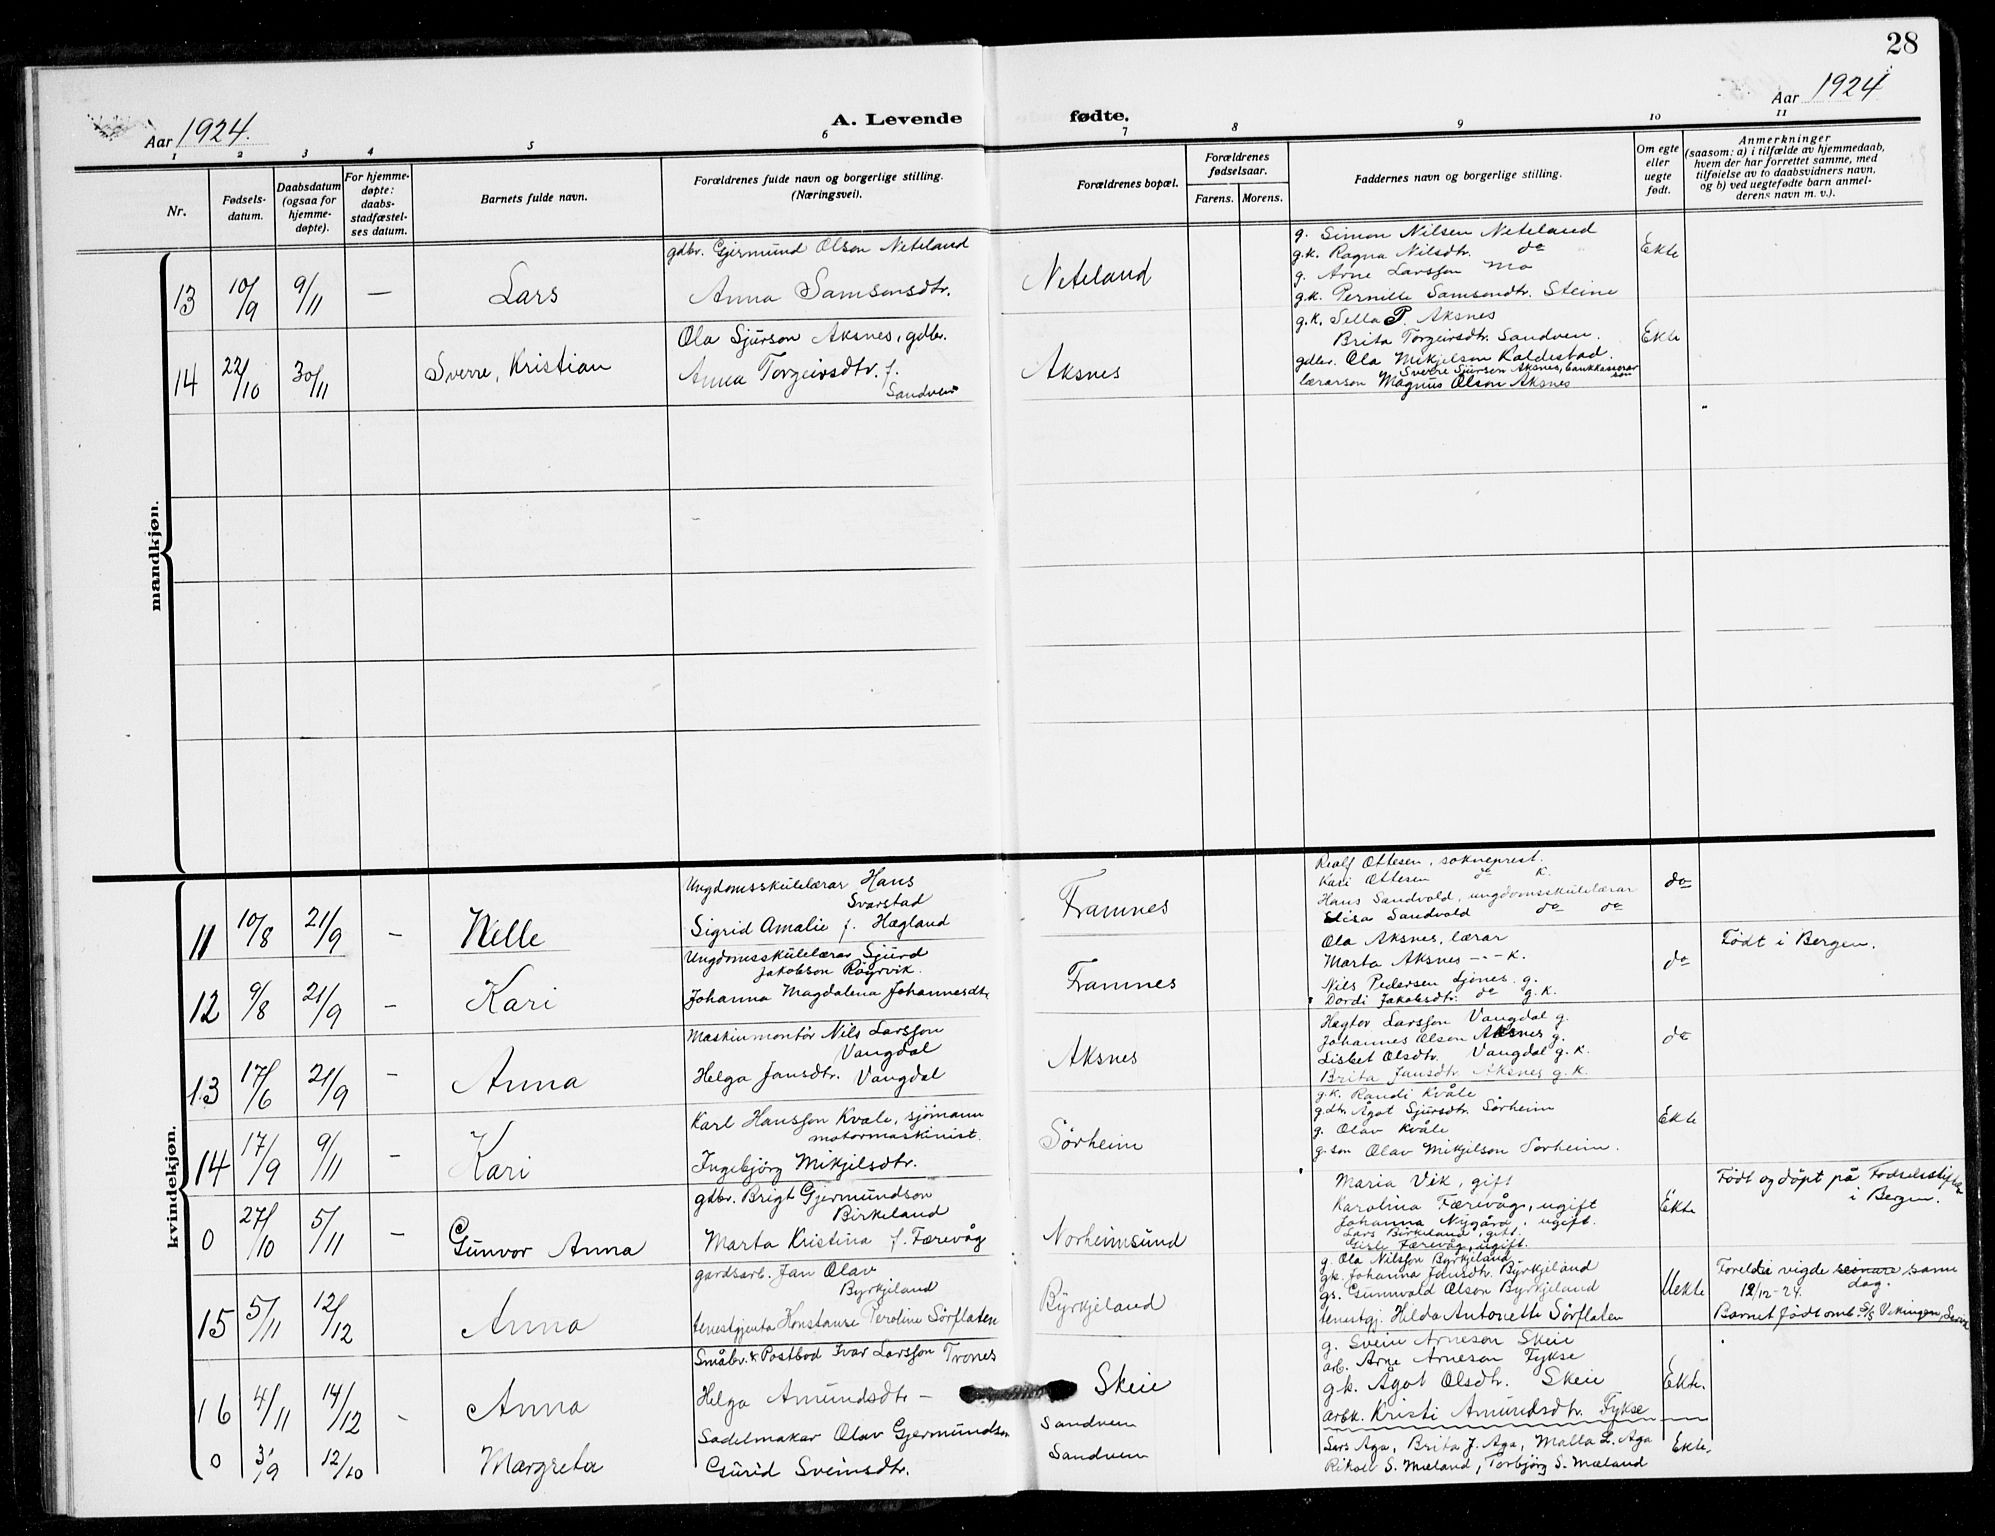 28
Aar 1924.
A. Levende fødte.
Aar 1924
1 2 3 4 5 6 7 8 9 10 11
Nr.
Fødsels-
datum.
Daabsdatum
(ogsaa for
hjemme-
døpte).
For hjemme-
døpte:
daabs-
stadfæstel-
ses datum.
Barnets fulde navn.
Forældrenes fulde navn og borgerlige stilling.
(Næringsvei).
Forældrenes bopæl.
Forældrenes
fødselsaar.
Farens. Morens.
Faddernes navn og borgerlige stilling.
Om egte
eller
uegte
født.
Anmerkninger
(saasom: a) i tilfælde av hjemmedaab,
hvem der har forrettet samme, med
tilføielse av to daabsvidners navn,
og b) ved uegtefødte barn anmel-
derens navn m. v.).
mandkjøn.
13 10/9 9/11 — Lars
gdbr. Gjermund Olson Neteland
Anna Samsonsdtr.
Neteland
g. Simon Nilsen Neteland
g.k. Ragna Nilsdtr. do
g. Arne Larsson Mo
g.k. Pernille Samsondtr. Steine
Ekte
14 22/10 30/11 Sverre, Kristian
Ola Sjurson Aksnes, gdbr.
Anna Torgeirsdtr. f.
Sandven
Aksnes
g.k. Sella P. Aksnes
Brita Torgeirsdtr. Sandven.
gdbr. Ola Mikjelson Kaldestad.
Sverre Sjurson Aksnes, bankkasserar
son
lærarson Magnus Olson Aksnes
Ekte
kvindekjøn.
11 10/8 21/9 - Helle
Ungdomsskulelærar Hans
Svarstad
Sigrid Amalie f. Hægland
Framnes
Realf Ottesen, sokneprest.
Kari Ottesen do k.
Hans Sandvold, ungdomsskulelærar
Elisa Sandvold do do
do
12 9/8 21/9 - Kari
Ungdomsskulelærar Sjurd
Jakobson Røyrvik.
Johanna Magdalena Johannesdtr.
Framnes
Ola Aksnes, lærar
Marta Aksnes - - - k.
Nils Pedersen Ljones g.
Dordi Jakobsdtr. do g.k.
do
Født i Bergen.
13 17/6 21/9 - Anna
Maskinmontør Nils Larsson
Vangdal
Helga Jansdtr. Vangdal
Aksnes
Hagtor Larsson Vangdal g.
Johannes Olson Aksnes g.
Lisbet Olsdtr. Vangdal g.k.
Brita Jansdtr. Aksnes g.k.
do
14 17/9 9/11 - Kari
Karl Hansson Kvale, sjømann
motormaskinist.
Ingebjørg Mikjelsdtr.
Sørheim
g.k. Randi Kvåle
g.dtr. Ågot Sjursdtr. Sørheim
g. Olav Kvåle
g.son Olav Mikjelson Sørheim.
Ekte
0 27/10 5/11 - Gunvor Anna
gdbr. Brigt Gjermundson
Birkeland
Marta Kristina f. Færevåg
Norheimsund
Maria Vik, gift
Karolina Færevåg, ugift
Johanna Nygård, ugift.
Lars Birkeland, gift.
Gisle Færevåg, ugift.
Ekte
Født og døpt på Fødselsstiftelsen
i Bergen.
15 5/11 12/12 Anna
gardsarb. Jan Olav
Byrkjeland
tenestgjenta Konstanse Peroline Sørflaten
Byrkjeland
g. Ola Nilsson Byrkjeland
gk. Johanna Jansdtr. Byrkjeland
gs. Gunnvald Olson Byrkjeland
tenestgj. Hilda Antonette Sørflaten
Uekte
Foreldre vigde seinare same
12/12-24. dag.
Barnet født omb. S/S Vikingen,
16 4/11 14/12 - Anna
Småbr. & Postbod Ivar Larsson Trones
Helga Amundsdtr —
Skeie
g. Svein Arneson Skeie
arb. Arne Arneson Fykse
g.k. Ågot Olsdtr. Skeie
arbk. Kristi Amundsdtr. Fykse
Ekte.
0 3/9 12/10 Margreta
Sadelmakar Olav Gjermundson
Gurid Sveinsdtr.
Sandven
Sandven
Lars Aga, Brita J. Aga, Malla L. Aga
Rikoll S. Mæland, Torbjørg S. Mæland
Ekte.